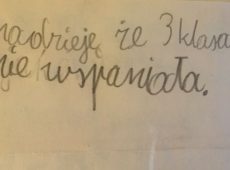 nadzieję że 3 klasa
wspaniała.